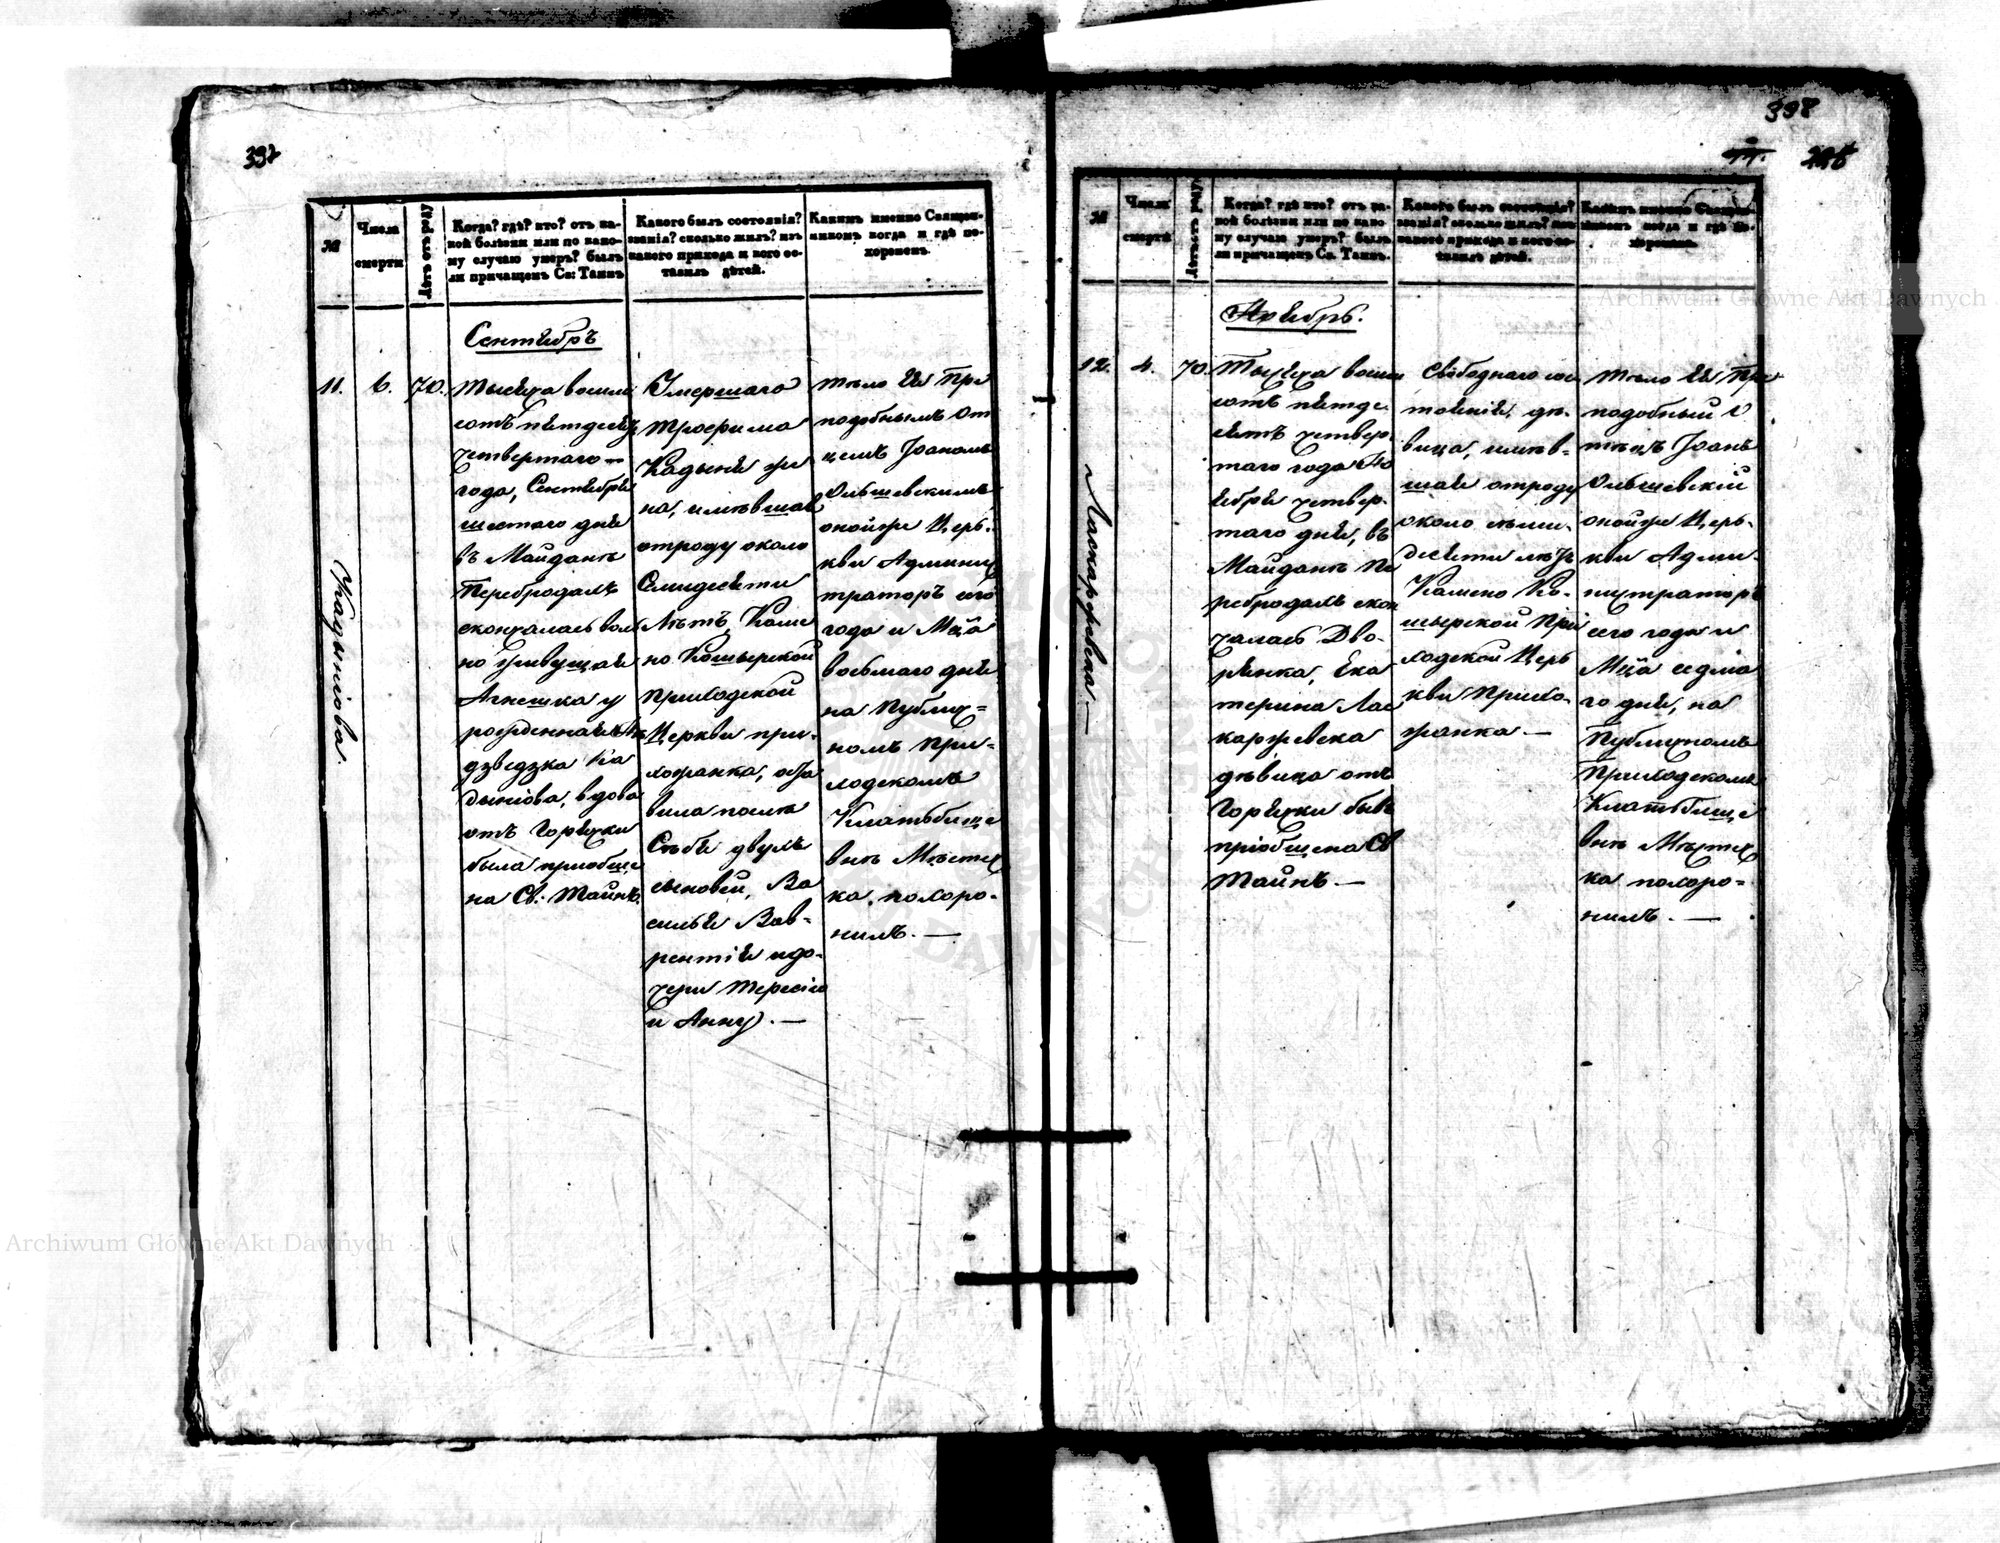 397
№
Числа
смерти
Лѣтъ отъ роду
Когда? гдѣ? кто? отъ ка-
кой болѣзни или по како-
му случаю умеръ? былъ
ли причащенъ Св: Таинъ
Какого былъ состоянія?
званія? сколько жилъ? изъ
какого прихода и кого ос-
тавилъ дѣтей.
Какимъ именно Священ-
никомъ когда и гдѣ по-
хороненъ.
Сентябръ
11.
6.
70.
Тысяча восим
сотъ пятдесятъ
четвертаго
года, Сентября
шестаго дня
въ Майданѣ
Перебродахъ
скончалась вол
но живущая
Агнешка у
рожденная
дзведзка Ка
дыніова, вдова
отъ Горячки
была приобще
на Св. Тайнъ.
Умершаго
Трофима
Кадыня же
на, имѣвшая
отроду около
Семидесяти
Лѣтъ, Каме
но Кошырской
приходской
Церкви при-
хожанка, оста
вила послѣ
Себя двухъ
сыновей, Ва
силья Вав-
рентія и до-
чери Тересію
и Анну). —
тѣло Ея Пре
подобнымъ От
цемъ Іоаномъ
Ольшевскимъ
онойже Церь-
кви Админис
траторъ сего
года и Мѣа
восьмаго дня
на Публич=
номъ При-
ходскомъ
Кладбище
внѣ Мѣстеч
ка, похоро-
нилъ. —
Кадыніова.
398
№
Числа
смерти
Лѣтъ отъ роду
Когда? гдѣ? кто? отъ ка-
кой болѣзни или по како-
му случаю умеръ? былъ
ли причащенъ Св. Таинъ.
Какого былъ состоянія?
званія? сколько жилъ? изъ
какого прихода и кого ос-
тавилъ дѣтей.
Какимъ именно Священ-
никомъ когда и гдѣ по-
хороненъ.
Ноябрь.
12.
4.
70.
Тысяча восим
сотъ пятде-
сятъ четвер-
таго года Но
ября четвер-
таго дня, въ
Майданѣ Пе
ребродахъ скон
чалась Дво-
рянка, Ека
терина Лас
каржевска
дѣвица отъ
Горячки бывъ
пріобщена Св
Тайнъ. —
Свободнаго сос
тоянія, дѣ-
вица, имѣв-
шая отроду
около семи-
десяти лѣтъ
Камено Ко-
шырской При
ходской Церь
кви прихо-
жанка. —
Тѣло Ея Пре
подобный О
тецъ Іоанъ
Ольшевскій
онойже Церь-
кви Адми-
нистраторъ
сего года и
Мѣа седма
го дня, на
Публичномъ
Приходскомъ
Кладбище
внѣ Мѣстеч
ка похоро=
нилъ. —
Ласкаржевска. —
Archiwum Główne Akt Dawnych
Archiwum Główne Akt Dawnych